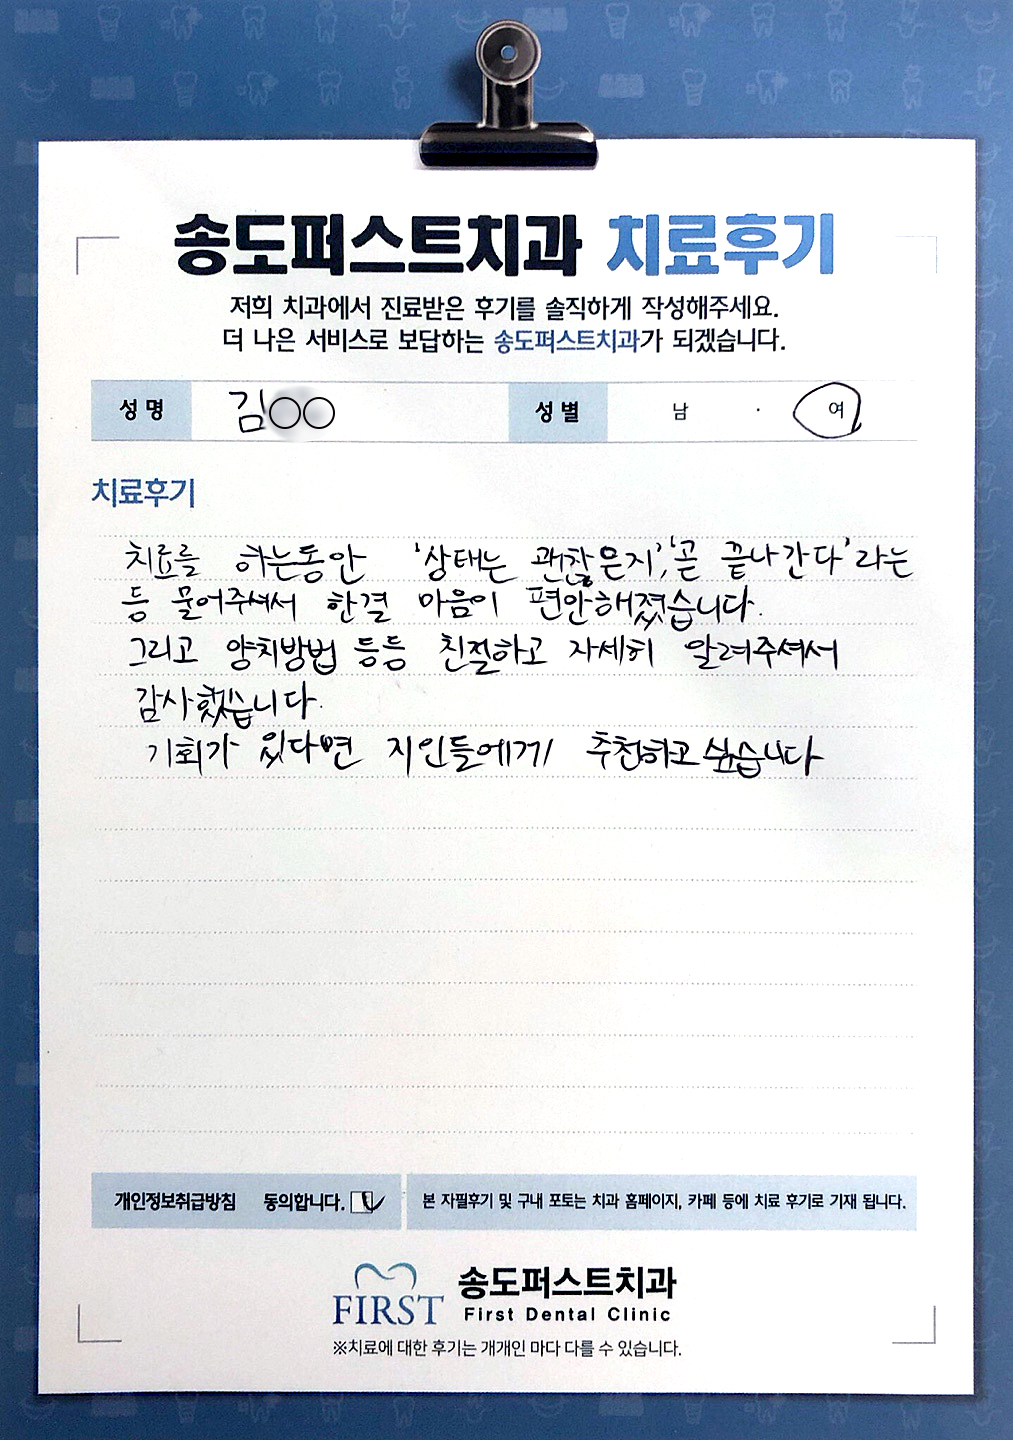 송도퍼스트치과 치료후기
저희 치과에서 진료받은 후기를 솔직하게 작성해주세요.
더 나은 서비스로 보답하는 송도퍼스트치과가 되겠습니다.
성명 김○○ 성별 남 · 여
치료후기
치료를 하는동안 '상태는 괜찮은지', '곧 끝나간다' 라는
등 물어주셔서 한결 마음이 편안해졌습니다.
그리고 양치방법 등등 친절하고 자세히 알려주셔서
감사했습니다.
기회가 있다면 지인들에게 추천하고 싶습니다
개인정보취급방침 동의합니다. 본 자필후기 및 구내 포토는 치과 홈페이지, 카페 등에 치료 후기로 기재 됩니다.
FIRST 송도퍼스트치과
First Dental Clinic
※치료에 대한 후기는 개개인 마다 다를 수 있습니다.